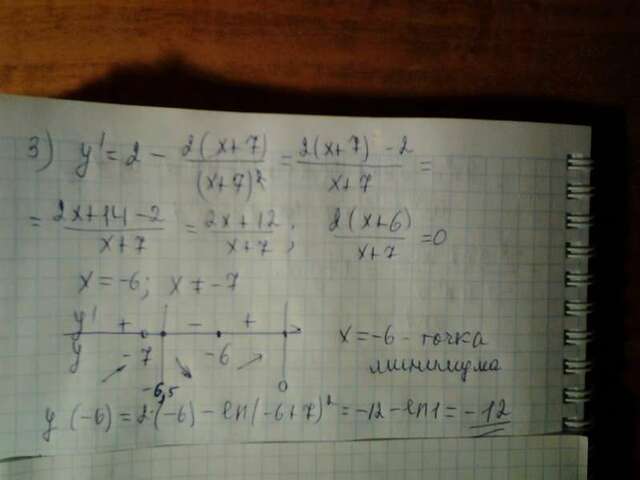 3) y' = 2 - 2(x+7)/(x+7)² = 2(x+7) - 2/x+7 =
= 2x+14-2/x+7 = 2x+12/x+7; 2(x+6)/x+7 = 0
x = -6; x ≠ -7
y' + - +
y -7 -6
-6,5 0
x = -6 - точка
минимума
y (-6) = 2·(-6) - ln(-6+7)² = -12 - ln1 = -12